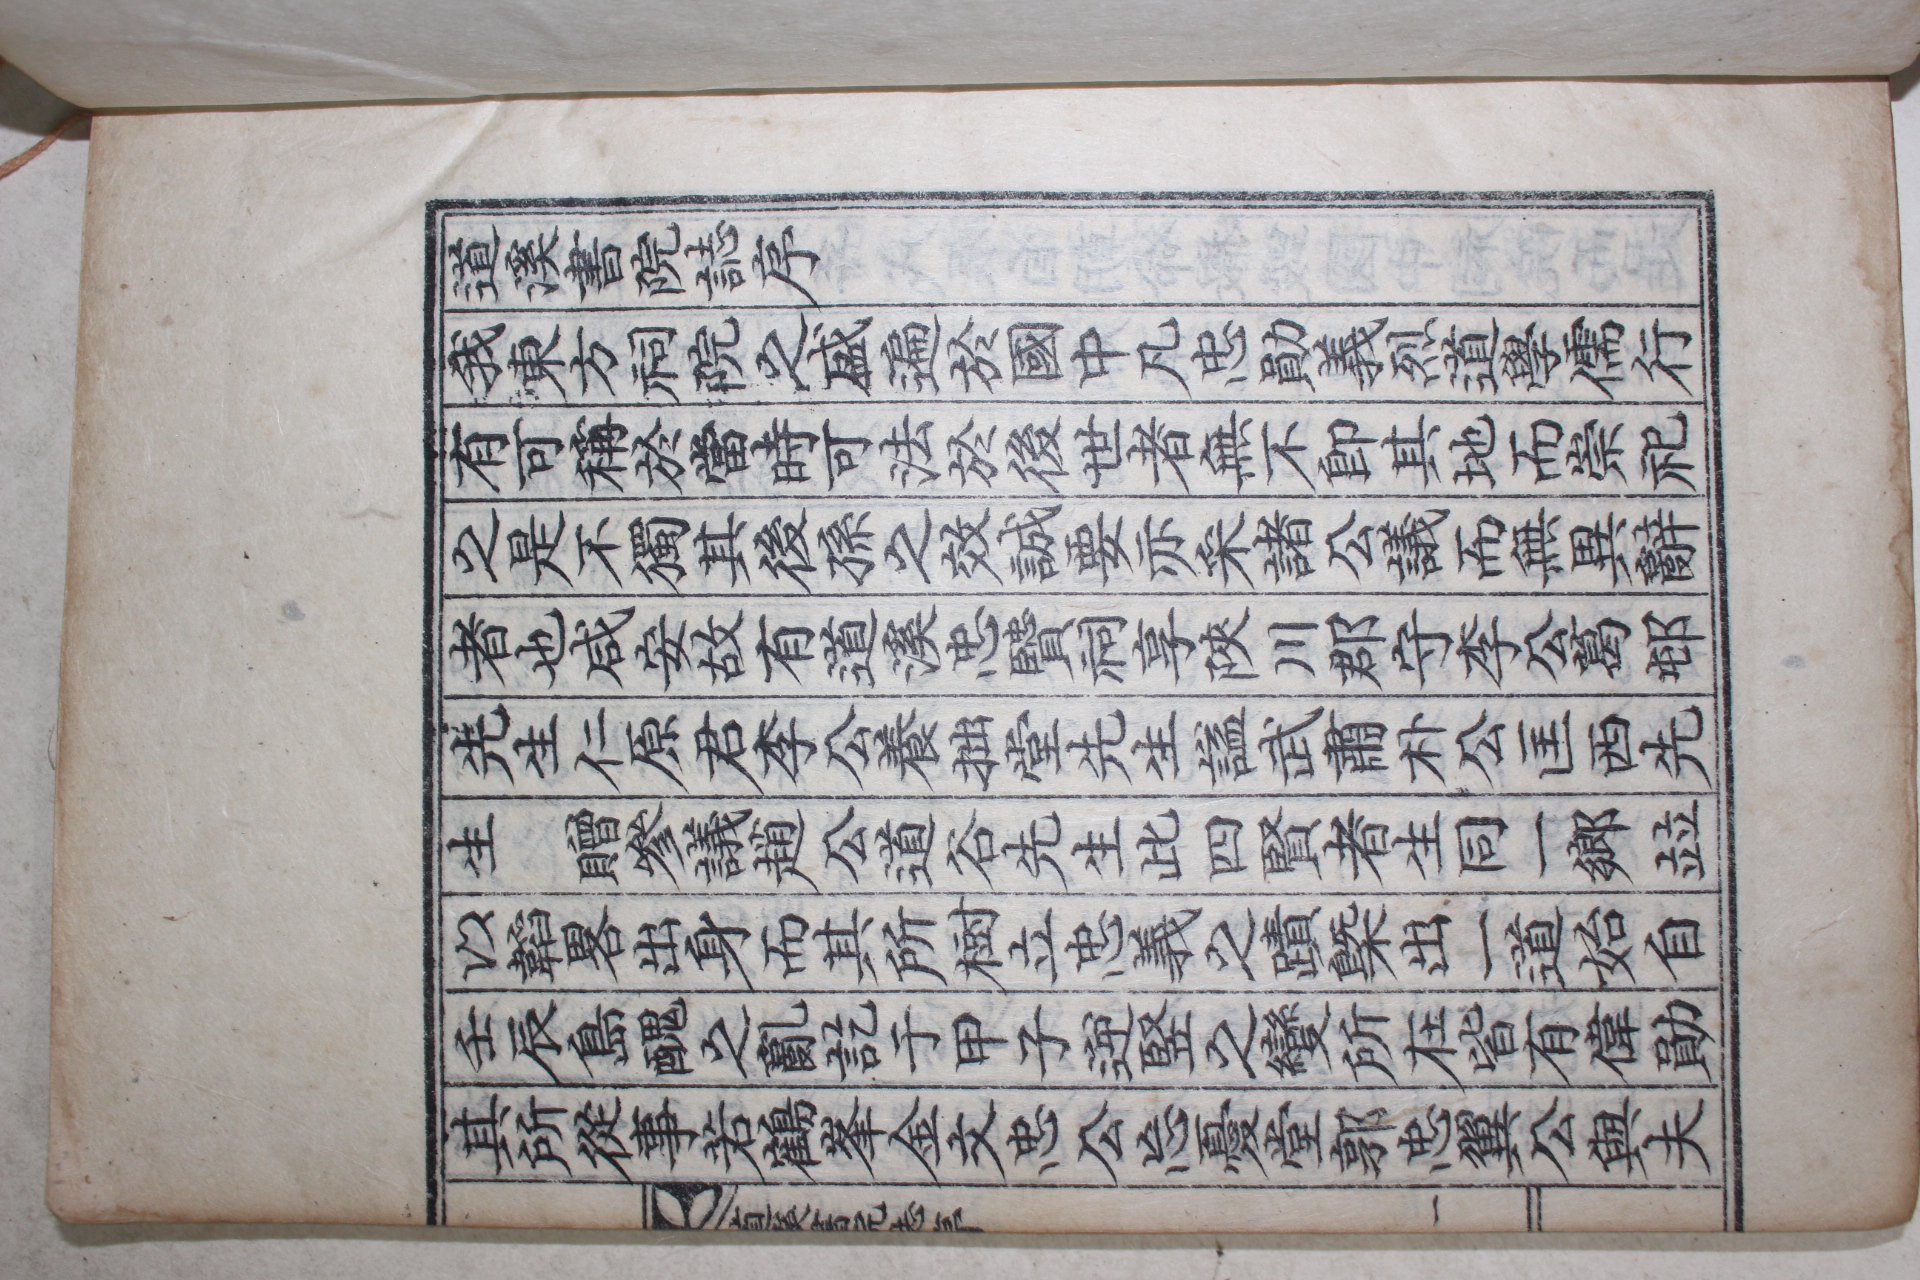 道溪書院誌序
我東方祠院之盛遍於國中凡忠勛義烈道學儒行
有可稱於當時可法於後世者無不卽其地而崇祀
之是不獨其後孫之效誠要亦采諸公議而無異辭
者也咸安故有道溪忠賢祠享陜川郡守李公葛邨
先生仁原君李公養拙堂先生謚武肅朴公匡西先
生　贈參議趙公道谷先生此四賢者生同一鄉並
以韜畧出身而其所樹立忠義之蹟槩出一道始自
壬辰島醜之亂訖于甲子逆竪之變所在皆有偉勛
其所從事若鶴峯金文忠公忘憂堂郭忠翼公與夫
道溪書院志序
一